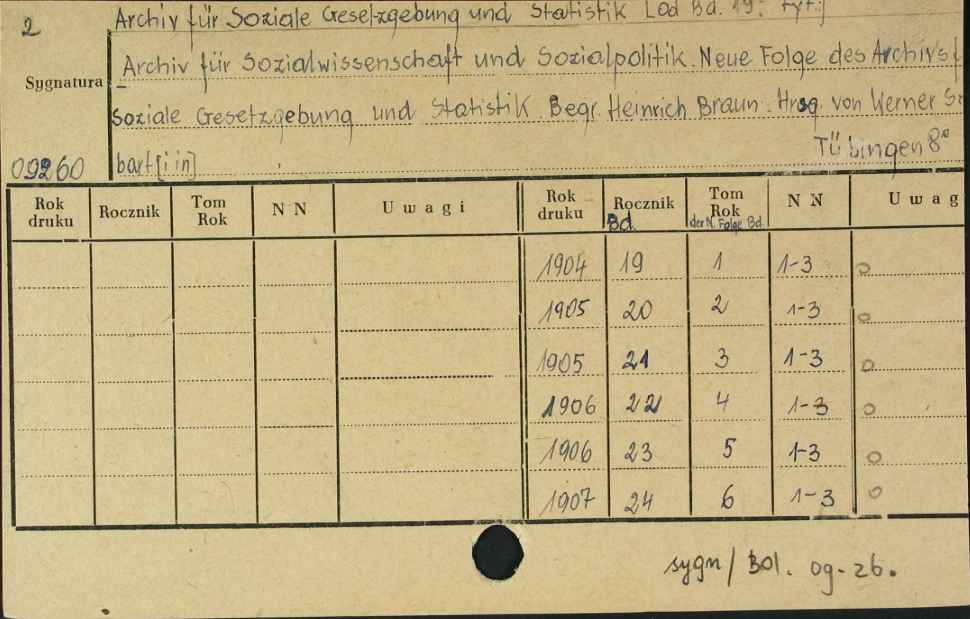 2
Archiv für Soziale Gesetzgebung und Statistik [od Bd. 19: tyt:]
Sygnatura
Archiv für Sozialwissenschaft und Sozialpolitik. Neue Folge des Archivs f
soziale Gesetzgebung und Statistik. Begr. Heinrich Braun. Hrsg. von Werner So
Tübingen 8°
09260 bart [i in]
Rok druku Rocznik Tom Rok N N Uwagi Rok druku Rocznik Bd Tom Rok der N. Folge Bd. N N Uwag
1904 19 1 1-3
1905 20 2 1-3
1905 21 3 1-3
1906 22 4 1-3
1906 23 5 1-3
1907 24 6 1-3
sygn/Bol. 09-26.